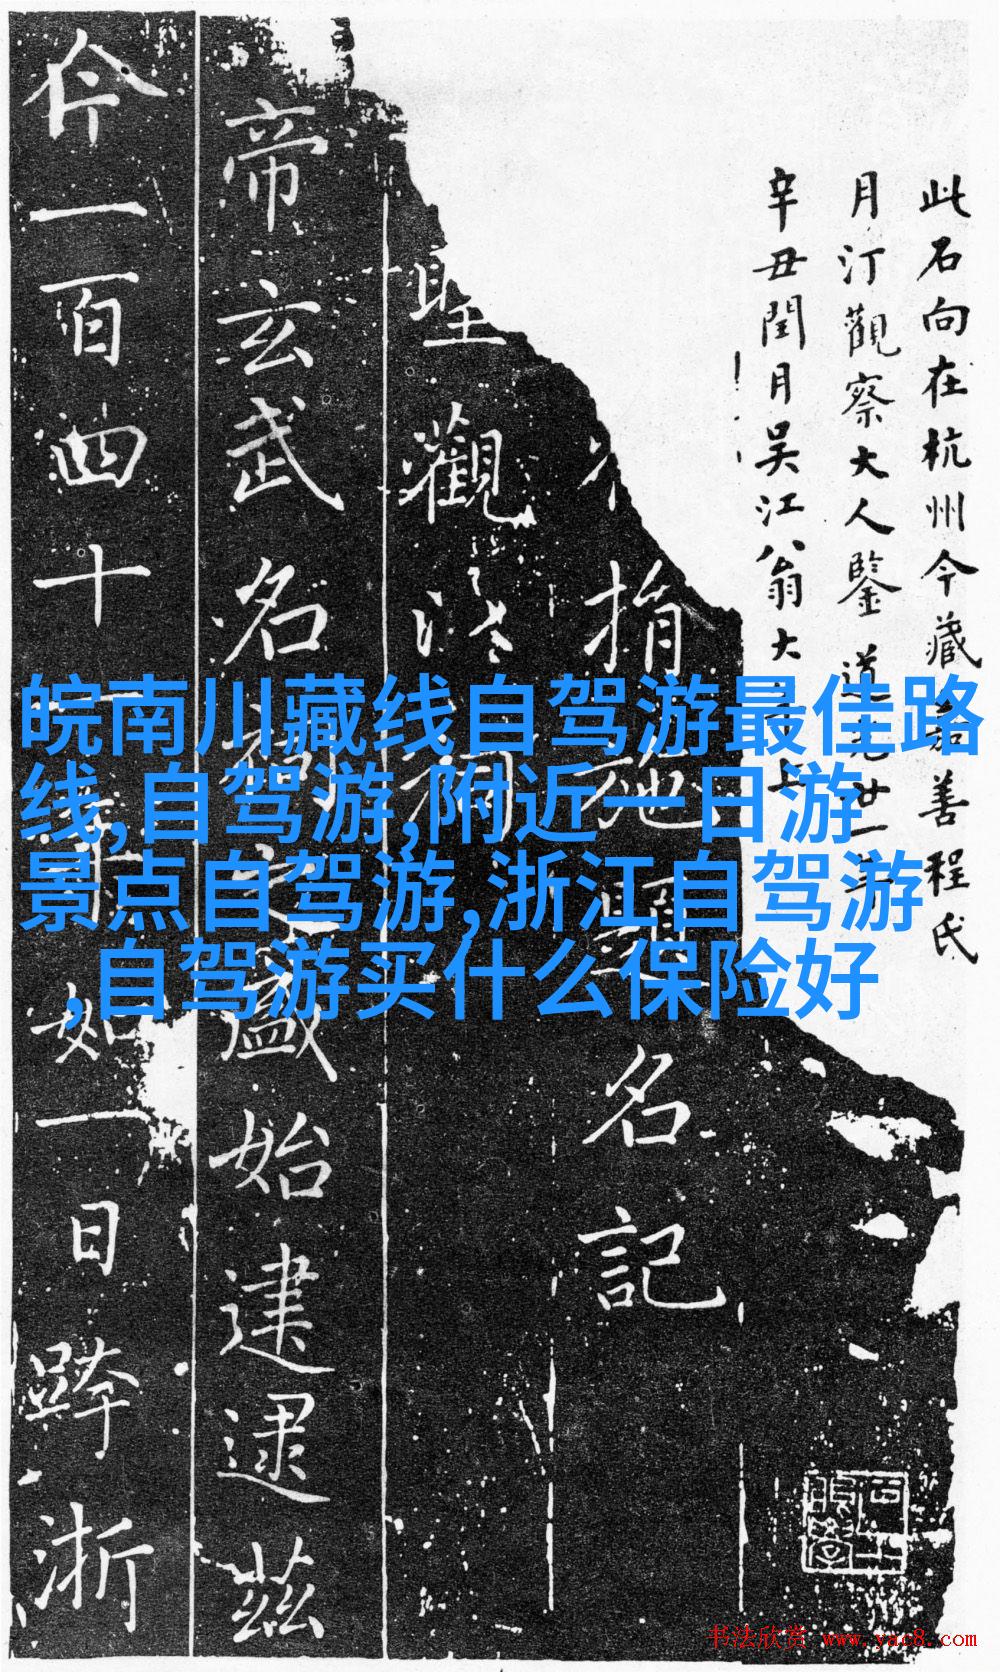 皖南川藏线自驾游最佳路
线,自驾游,附近一日游
景点自驾游,浙江自驾游
,自驾游买什么保险好
此石向在杭州今藏善程氏
月汀觀察大人鑒 道光廿一
辛丑閏月吳江翁大
指地題名記
觀
帝玄武名盛始建逮茲
今一百四十如一日跨浙
书法欣赏 www.yac8.com